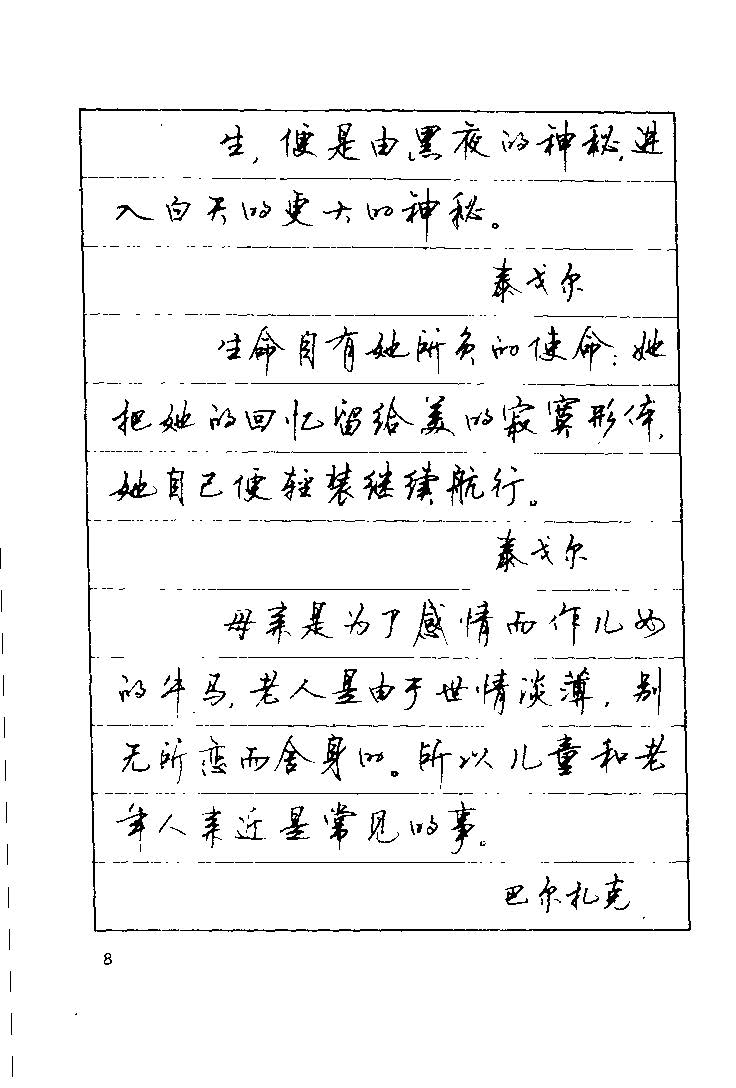 生，便是由黑夜的神秘，进
入白天的更大的神秘。
泰戈尔
生命自有她所负的使命：她
把她的回忆留给美的寂寞形体，
她自己便轻装继续航行。
泰戈尔
母亲是为了感情而作儿女
的牛马，老人是由于世情淡薄，别
无所恋而舍身的。所以儿童和老
年人亲近是常见的事。
巴尔扎克
8